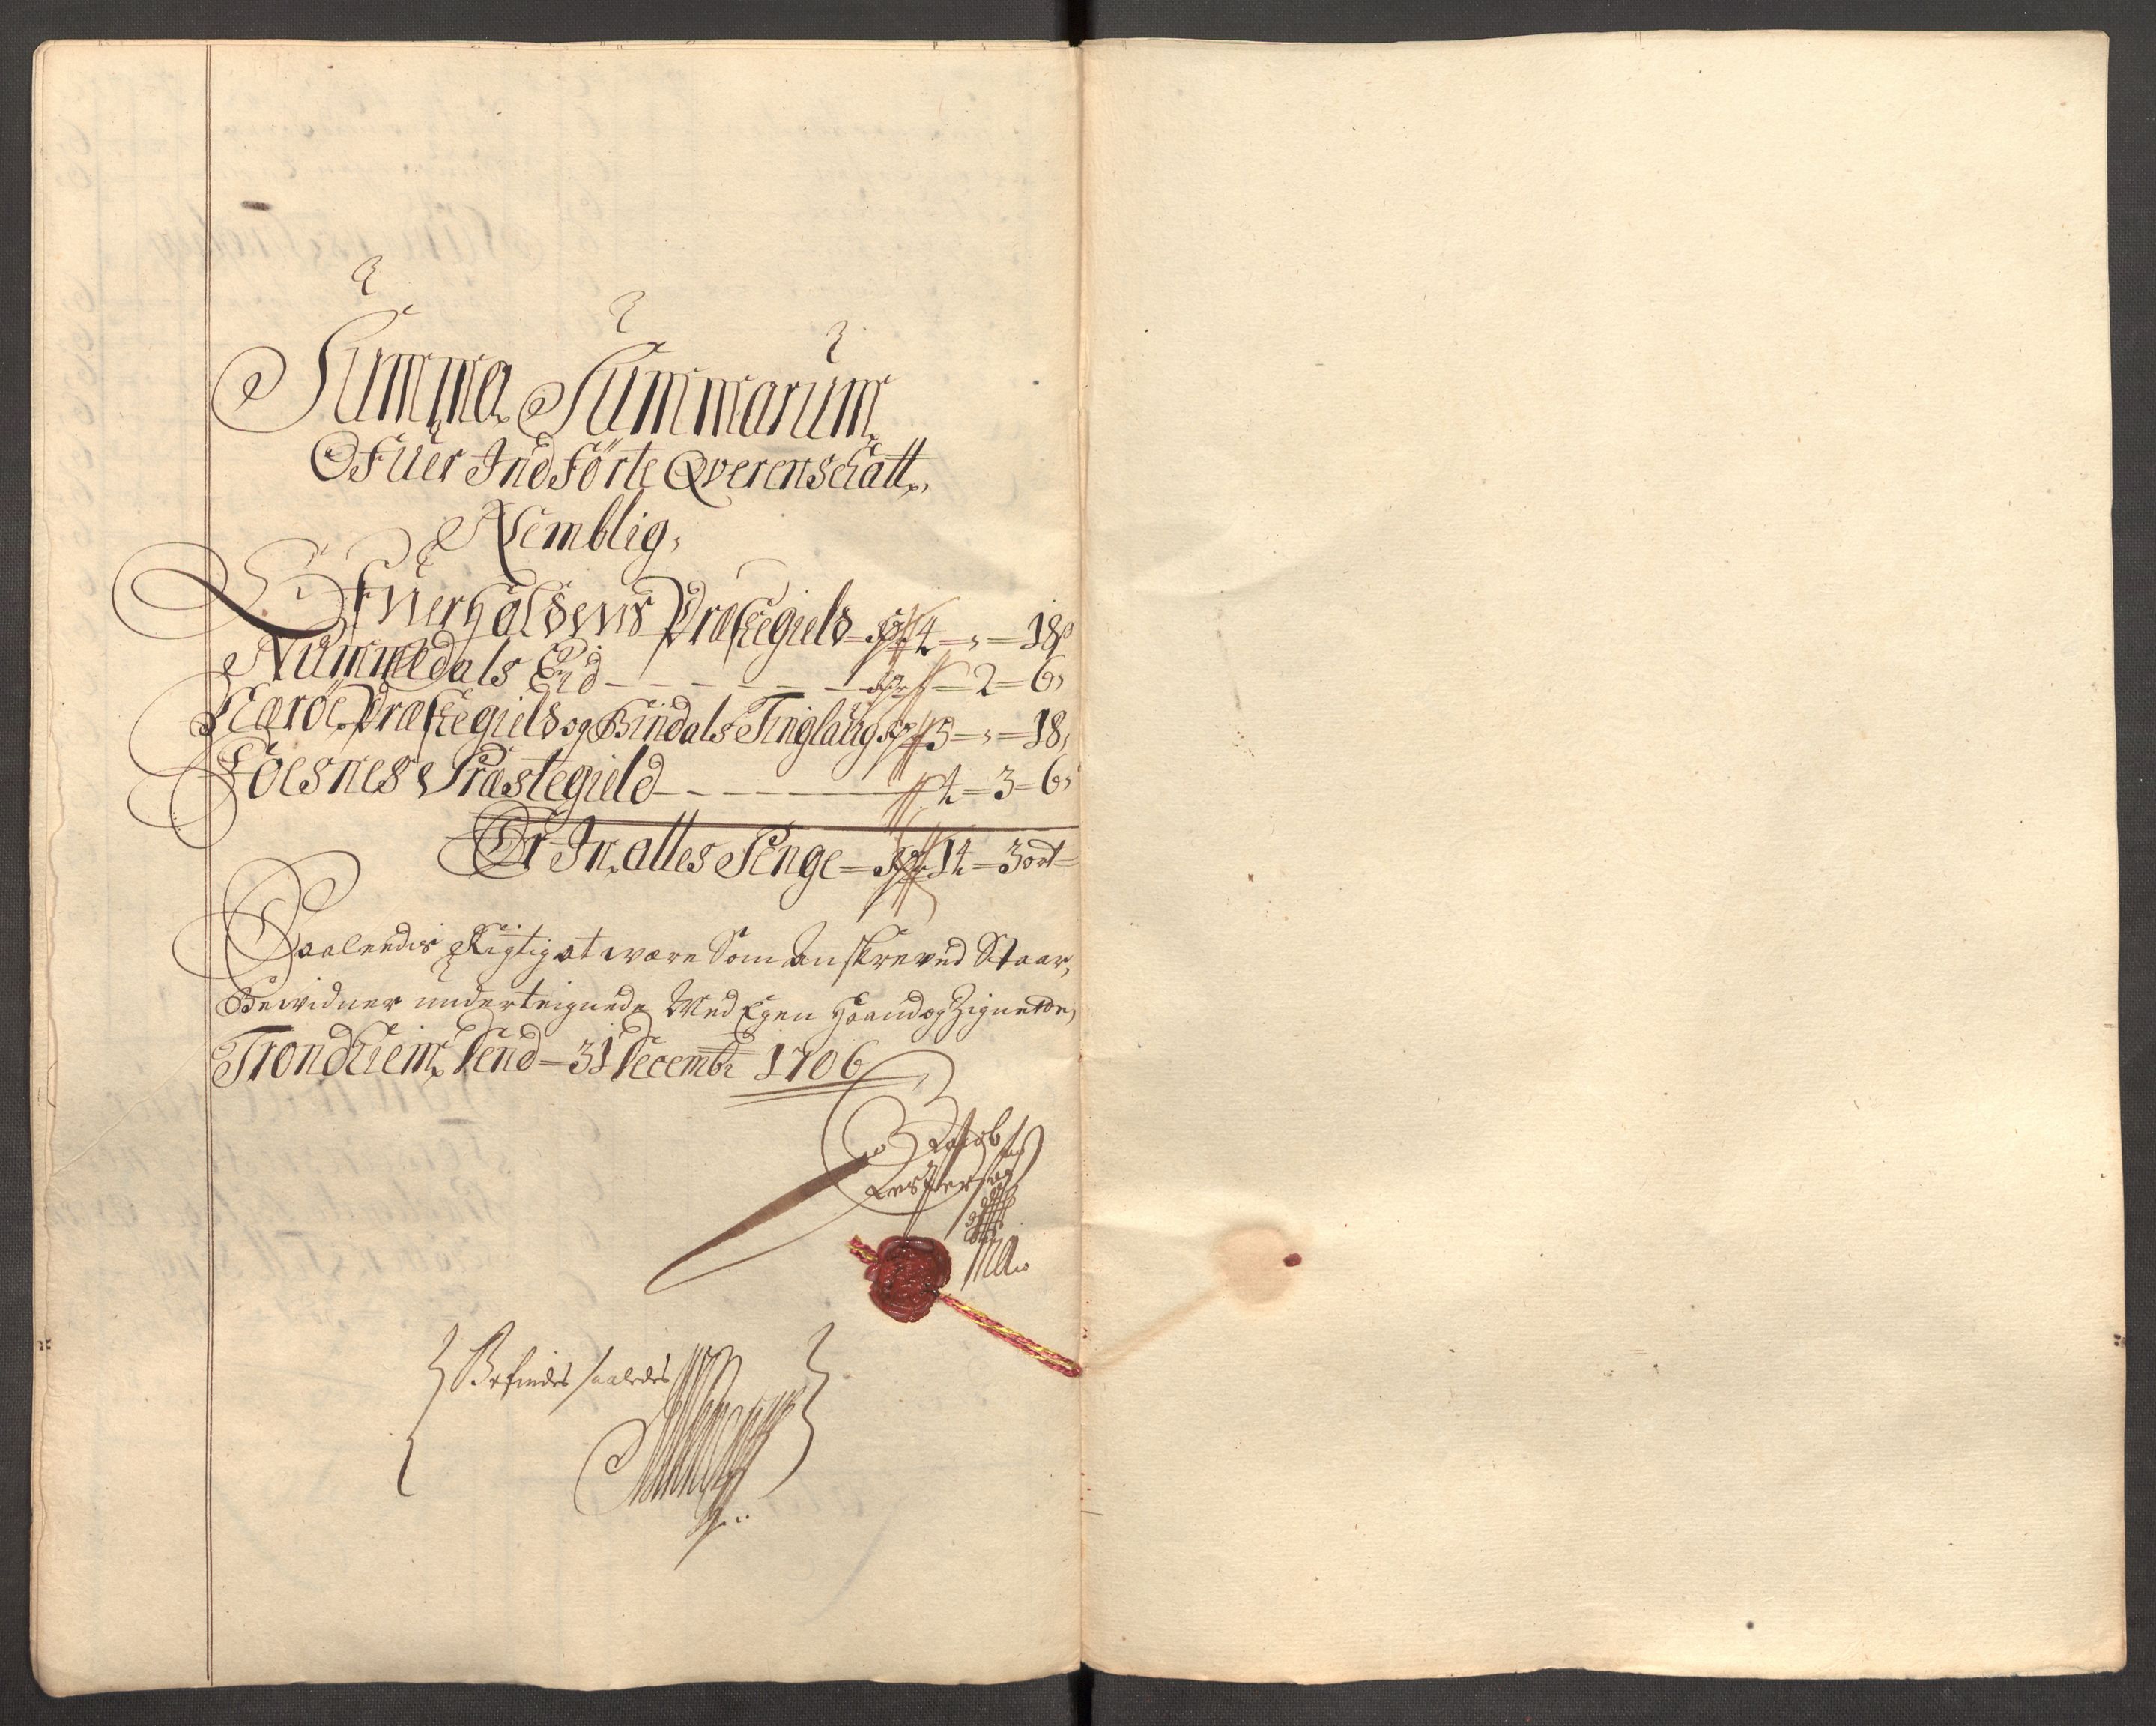 Summa Summarum
Ofuer Indförte Qverenschatt,
Nemblig,
Ofuerhaldens Præstegield – Spr 4 – „ – 18
Nummedals Eid – – – – – Spr – 2 – 6,
Næröe Præstegield og Bindals Tinglaug Spr 5 – „ – 18,
Foesnes Præstegield – – – – 4 – 3 – 6,
Er In alles Penge – Spr 14 – 3 ort
Saaledis Rigtig at wære Som Anskreved Staar,
Bewidner underteignede Med Egen Haand og Zignette,
Trondhiem Dend – 31 Decembr 1706
Befindes saaledes